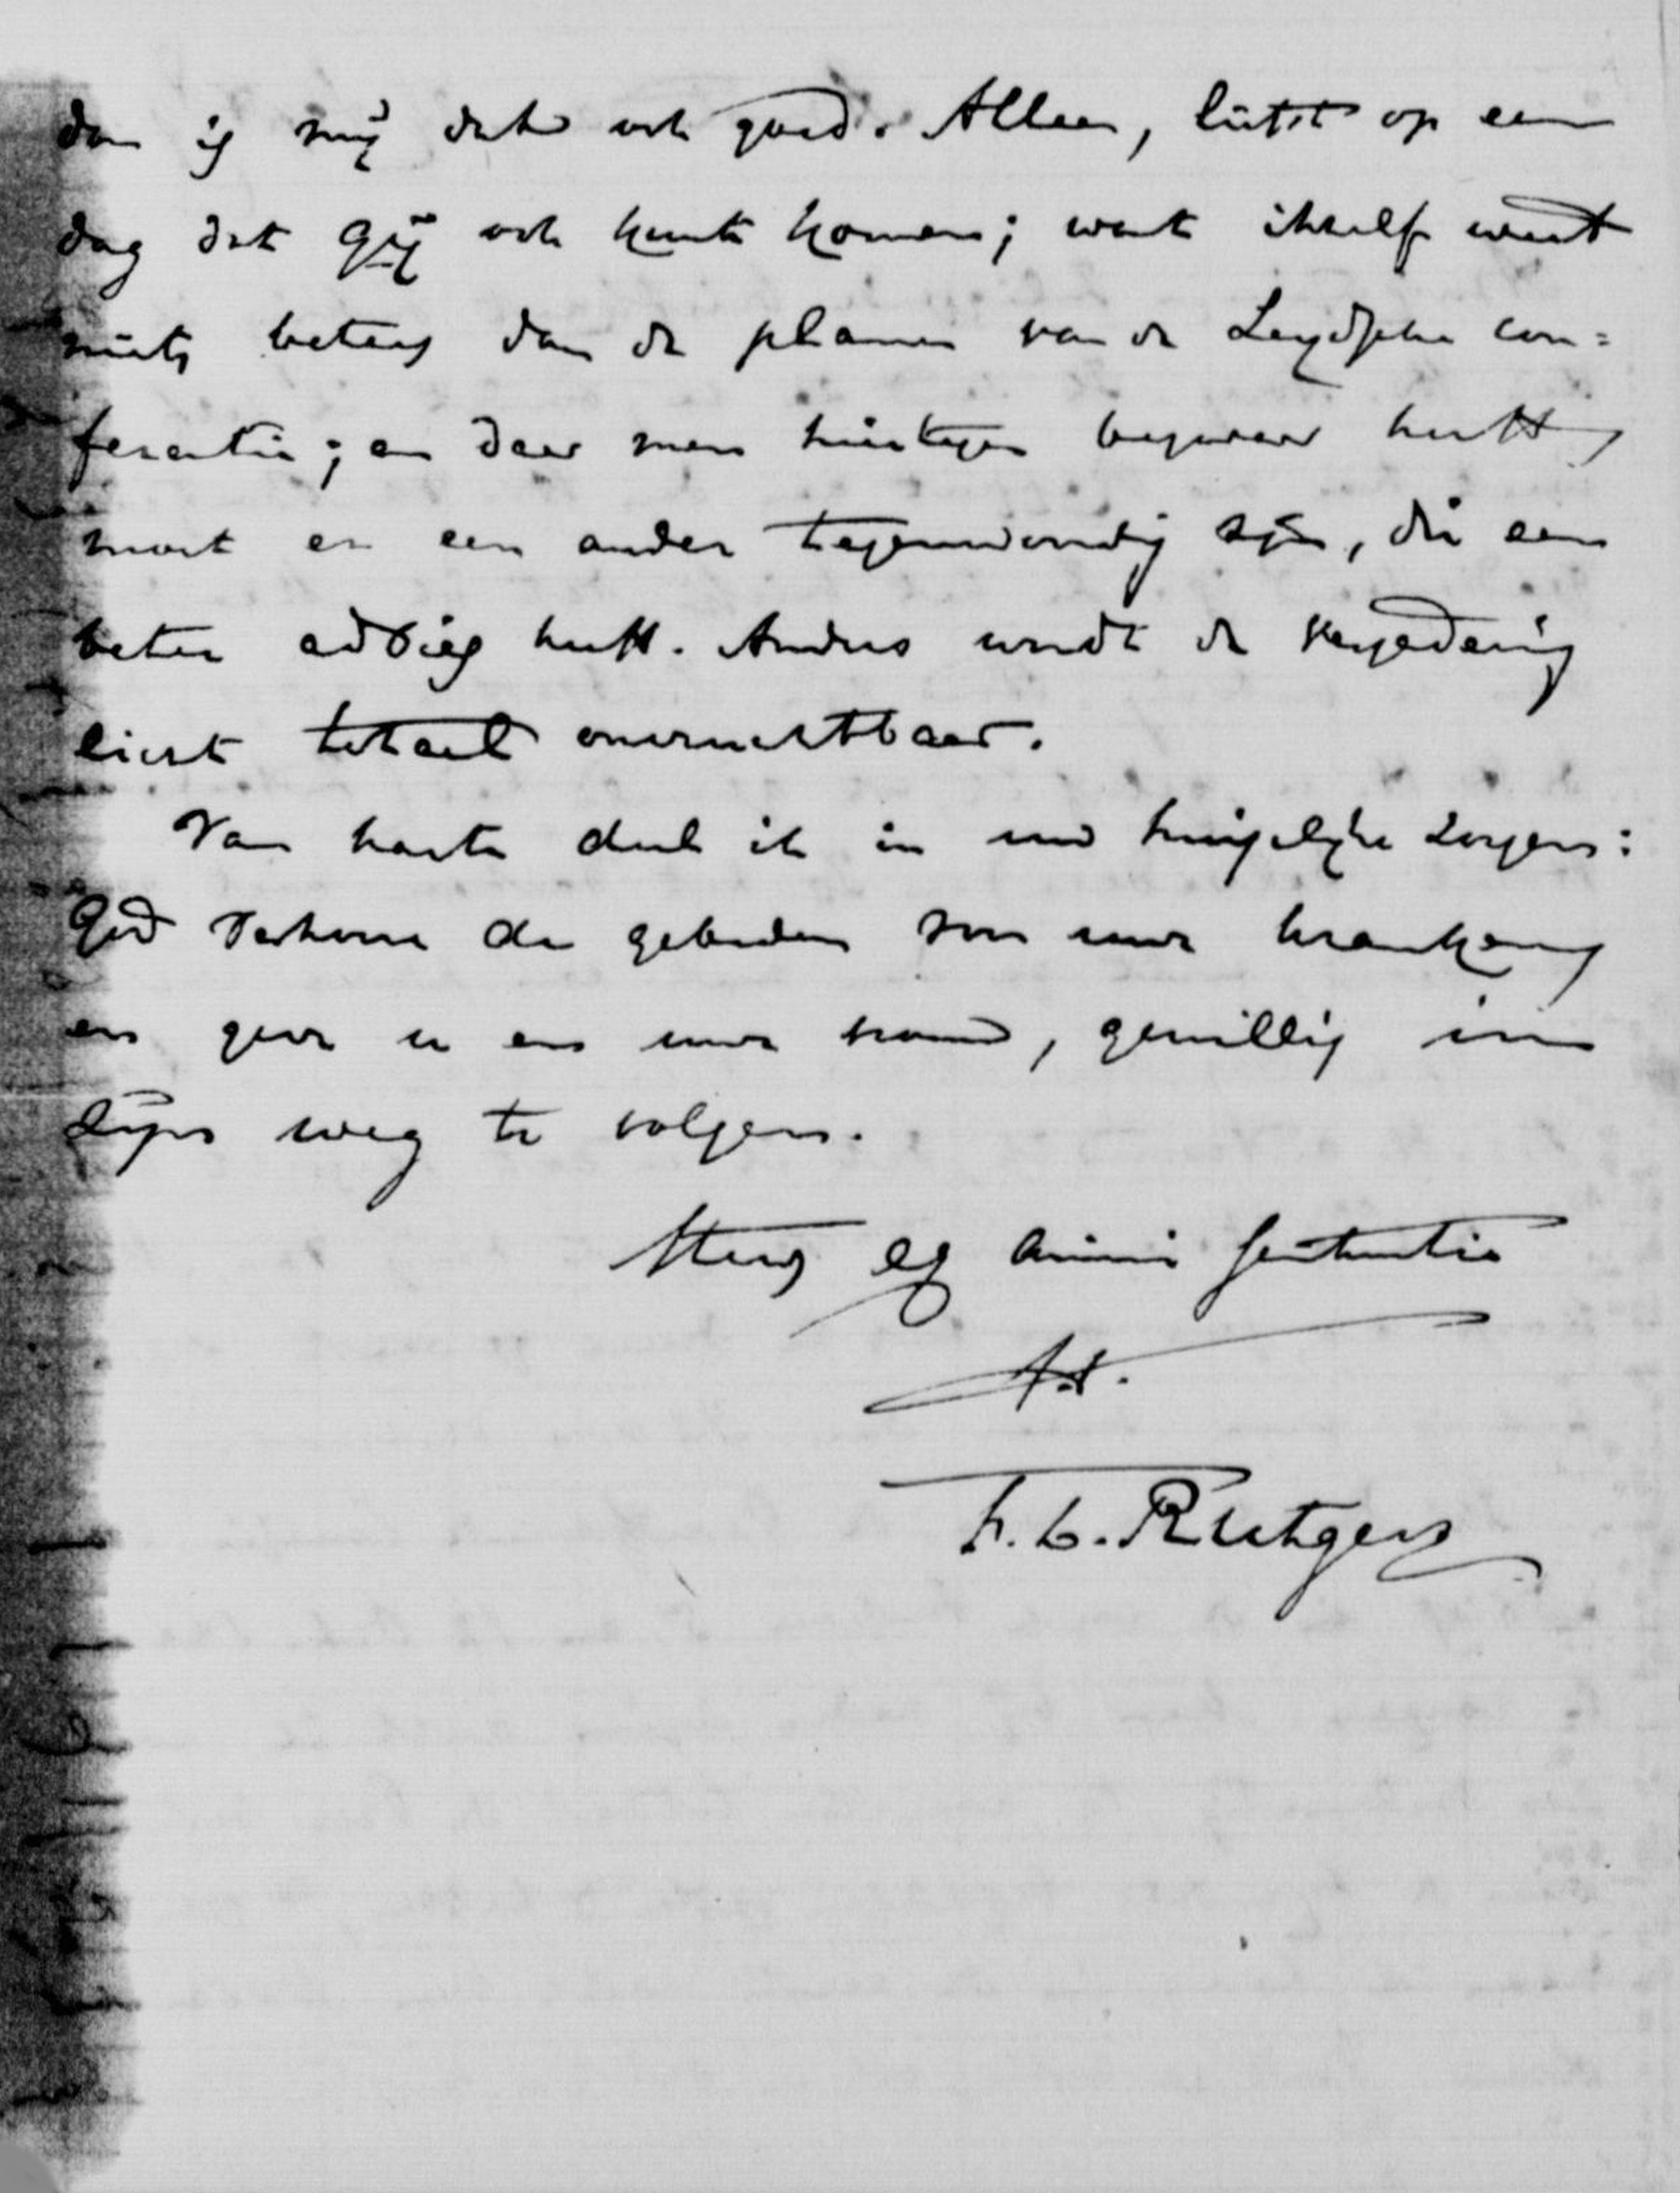 dan is mij dat ook goed. Alleen, liefst op een
dag dat gij ook kunt komen; want ikzelf weet
niets beters dan de plannen van de Leydsche con=
ferentie; en daar men hiertegen bezwaar heeft,
moet er een ander tegenwoordig zijn, die een
beter advies heeft. Anders wordt de vergadering
licht totaal onvruchtbaar.
Van harte deel ik in uw huiselijke zorgen:
God verhoore de gebeden voor uwe kranken,
en geve u en uwe vrouw, gewillig in
Zijn weg te volgen.
ex animi sententia
t.t.
F. L. Rutgers